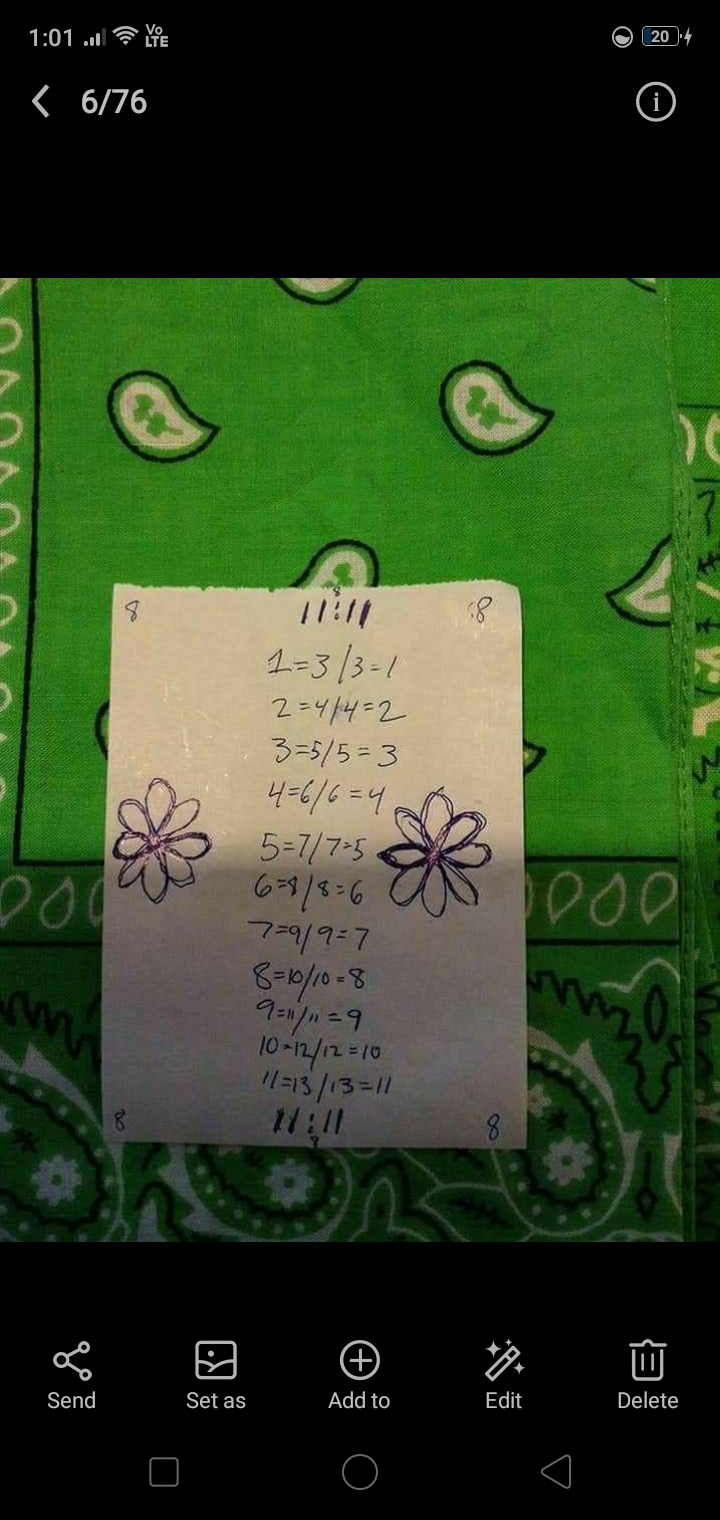 1:01 Vo LTE 20
6/76
8
8 11:11 8
1=3/3=1
2=4/4=2
3=5/5=3
4=6/6=4
5=7/7=5
6=8/8=6
7=9/9=7
8=10/10=8
9=11/11=9
10=12/12=10
11=13/13=11
8 11:11 8
8
Send Set as Add to Edit Delete